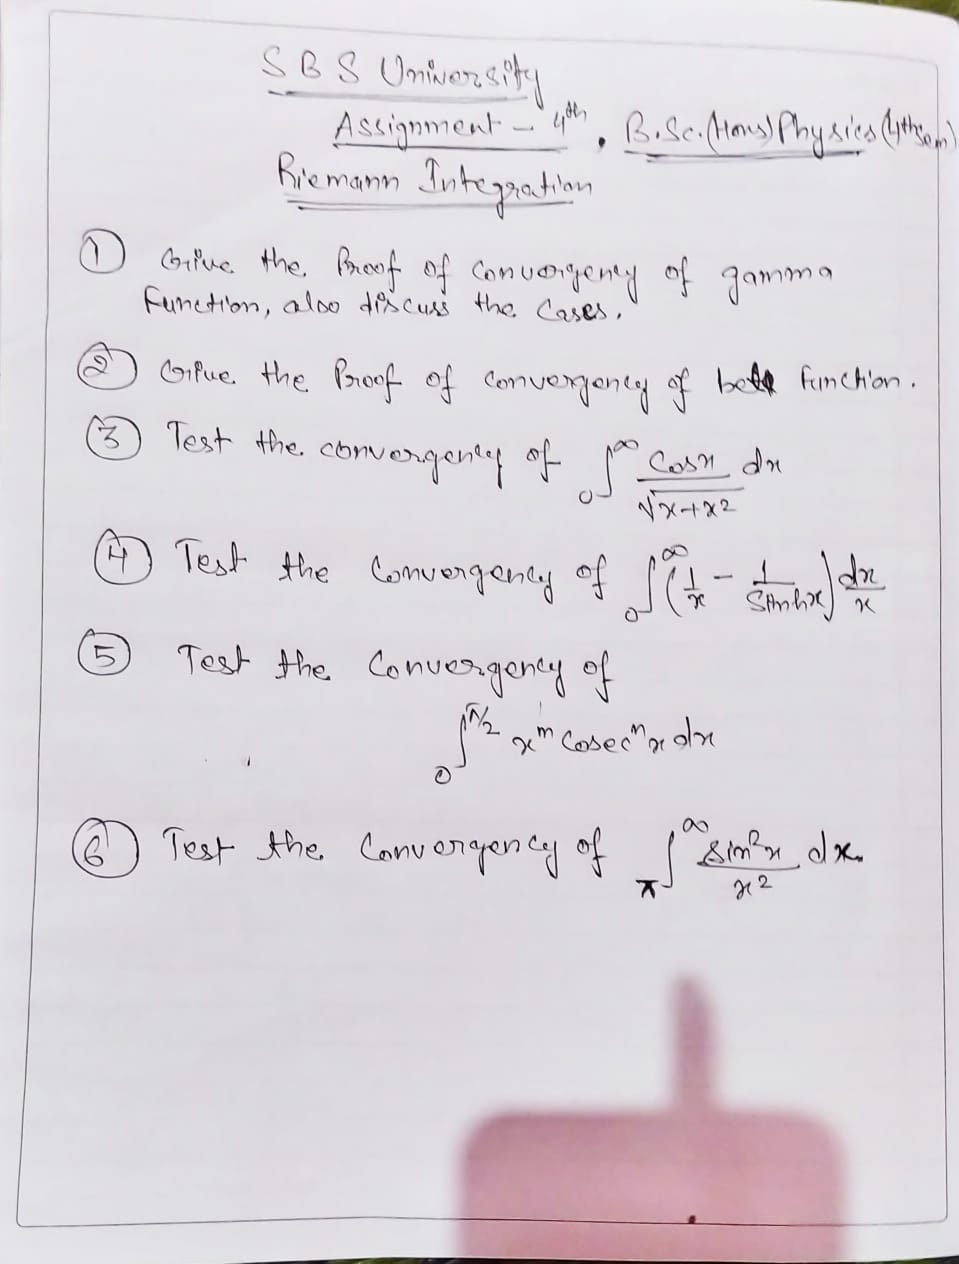 SBS University
Assignment - 4th, B.Sc.(Hons) Physics (4th Sem)
Riemann Integration
① Give the Proof of Convergency of gamma
Function, also discuss the Cases.
② Give the Proof of convergency of beta function.
③ Test the convergency of ₀∫^∞ cosx/√x+x² dx
④ Test the Convergency of ₀∫^∞ (1/x - 1/Sinhx) dx/x
⑤ Test the Convergency of
₀∫^π/2 x^m Cosec^n x dx
⑥ Test the Convergency of π∫^∞ sin²x/x² dx.